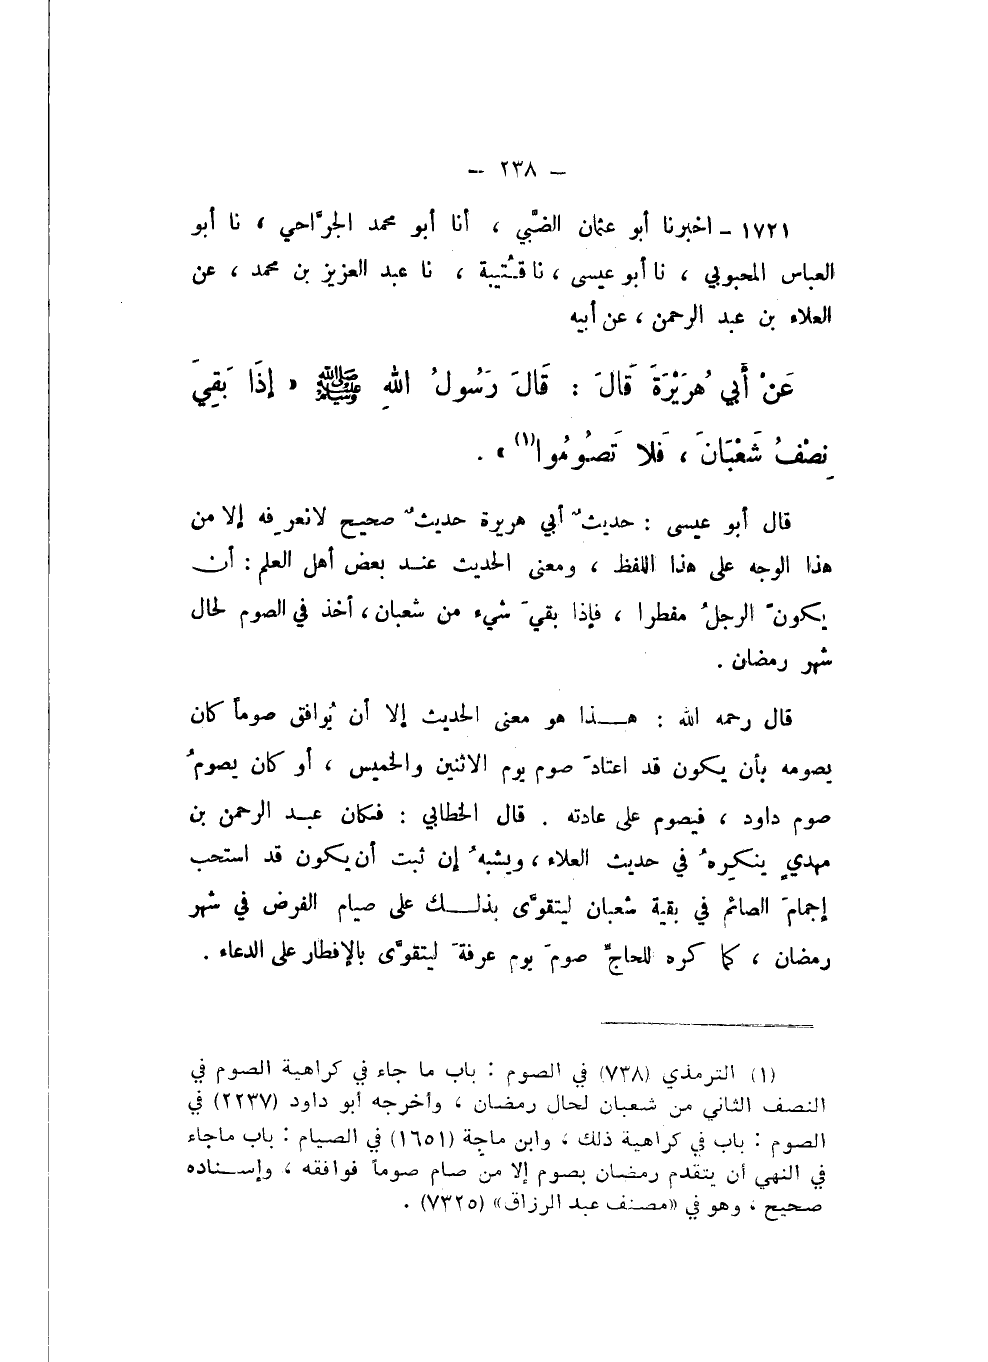 – ٢٣٨ –
١٧٢١ – اخبرنا أبو عثمان الضبّي ، أنا أبو محمد الجرّاحي ، نا أبو
العباس المحبوبي ، نا أبو عيسى ، نا قـُتيبة ، نا عبد العزيز بن محمد ، عن
العلاء بن عبد الرحمن ، عن أبيه
عَنْ أَبي هُرَيْرَةَ قَالَ : قَالَ رَسُولُ اللهِ ﷺ « إذَا بَقِيَ
نِصْفُ شَعْبَانَ ، فَلا تَصُومُوا(١) » .
قال أبو عيسى : حديثُ أبي هريرة حديثٌ صحيح لانعرِفه إلا من
هذا الوجه على هذا اللفظ ، ومعنى الحديث عنـد بعض أهل العلم : أن
يكونَ الرجلُ مفطرا ، فإذا بقيَ شيء من شعبان ، أخذ في الصوم لحال
شهر رمضان .
قال رحمه الله : هــذا هو معنى الحديث إلا أن يُوافق صوماً كان
يصومه بأن يكون قد اعتادَ صوم يوم الاثنين والخميس ، أو كان يصومُ
صوم داود ، فيصوم على عادته . قال الخطابي : فكان عبـد الرحمن بن
مهديٍ ينكِره ُ في حديث العلاء ، ويشبهُ إن ثبت أن يكون قد استحب
إجمامَ الصائم في بقية شعبان ليتقوَّى بذلــك على صيام الفرض في شهر
رمضان ، كما كره للحاجِّ صومَ يوم عرفةَ ليتقوَّى بالإفطار على الدعاء .
(١) الترمذي (٧٣٨) في الصوم : باب ما جاء في كراهية الصوم في
النصف الثاني من شعبان لحال رمضان ، وأخرجه أبو داود (٢٢٣٧) في
الصوم : باب في كراهية ذلك ، وابن ماجة (١٦٥١) في الصيام : باب ماجاء
في النهي أن يتقدم رمضان بصوم إلا من صام صوماً فوافقه ، وإسـناده
صحيح ، وهو في «مصنف عبد الرزاق» (٧٣٢٥) .